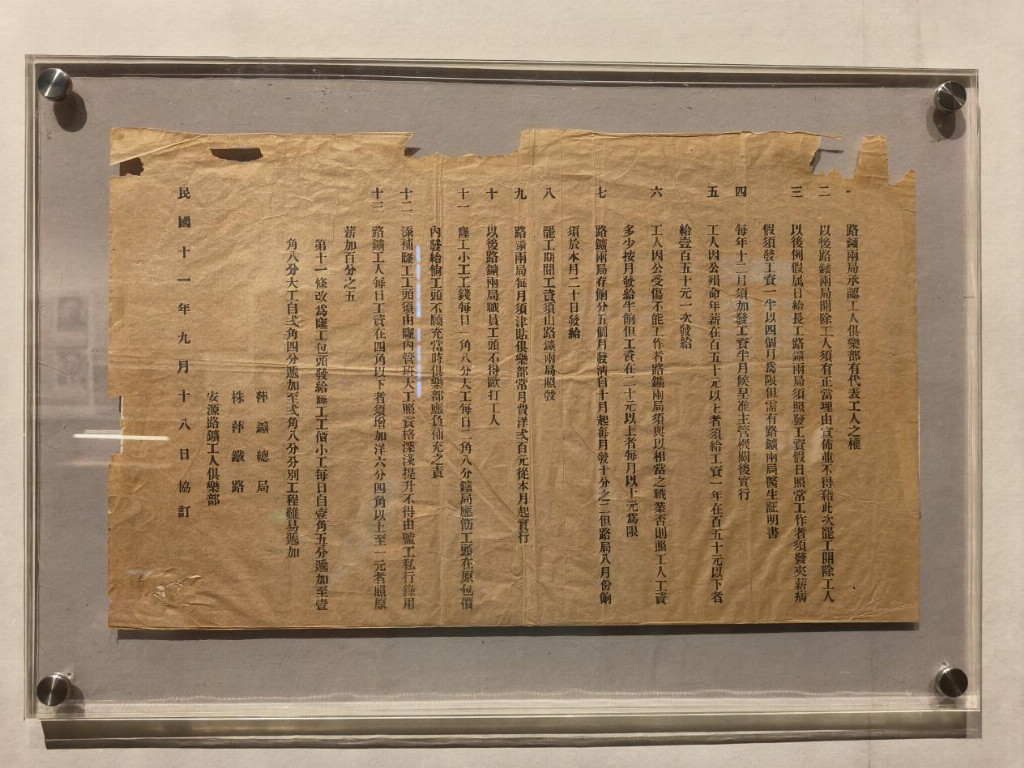 一 路鑛兩局承認工人俱樂部有代表工人之權
二 以後路鑛兩局開除工人須有正當理由宣佈並不得藉此次罷工開除工人
三 以後例假属日給長工路鑛兩局須照發工資假日照常工作者須發夾薪病
假須發工資一半以四個月爲限但需有路鑛兩局醫生証明書
四 每年十二月須加發工資半月候呈准主管機關後實行
五 工人因公殞命年薪在百五十元以上者須給工資一年在百五十元以下者
給壹百五十元一次發給
六 工人因公受傷不能工作者路鑛兩局須予以相當之職業否則照工人工資
多少按月發給半餉但工資在二十元以上者每月以十元爲限
七 路鑛兩局存餉分五個月發淸自十月起每月發十分之二但路局八月份餉
須於本月二十日發給
八 罷工期間工資須由路鑛兩局照發
九 路鑛兩局每月須津貼俱樂部常月費洋弍百元從本月起實行
十 以後路鑛兩局職員工頭不得歐打工人
十一 窿工小工工錢每日一角八分大工每日二角八分鑛局應飭工頭在原包價
內發給倘工頭不願充當時俱樂部應負補充之責
十二 添補窿工工頭須由窿內管班大工照資格深淺提升不得由監工私行錄用
十三 路鑛工人每日工資在四角以下者須增加洋六分四角以上至一元者照原
薪加百分之五
第十一條改爲窿工包頭發給 工價小工每日自壹角五分遞加至壹
角八分大工自弍角四分遞加至弍角八分分別工程難易遞加
萍鑛總局
株萍鐵路
安源路鑛工人俱樂部
民國十一年九月十八日協訂